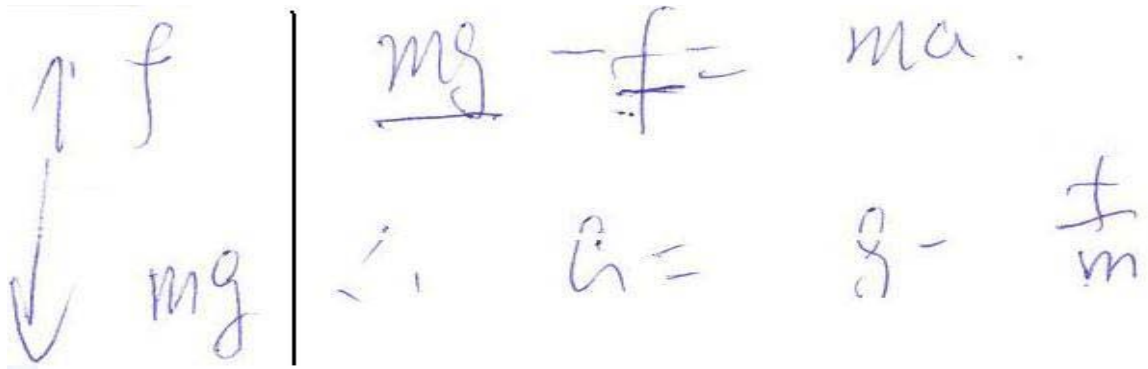 f
mg
mg - f = ma.
∴ a = g - f/m